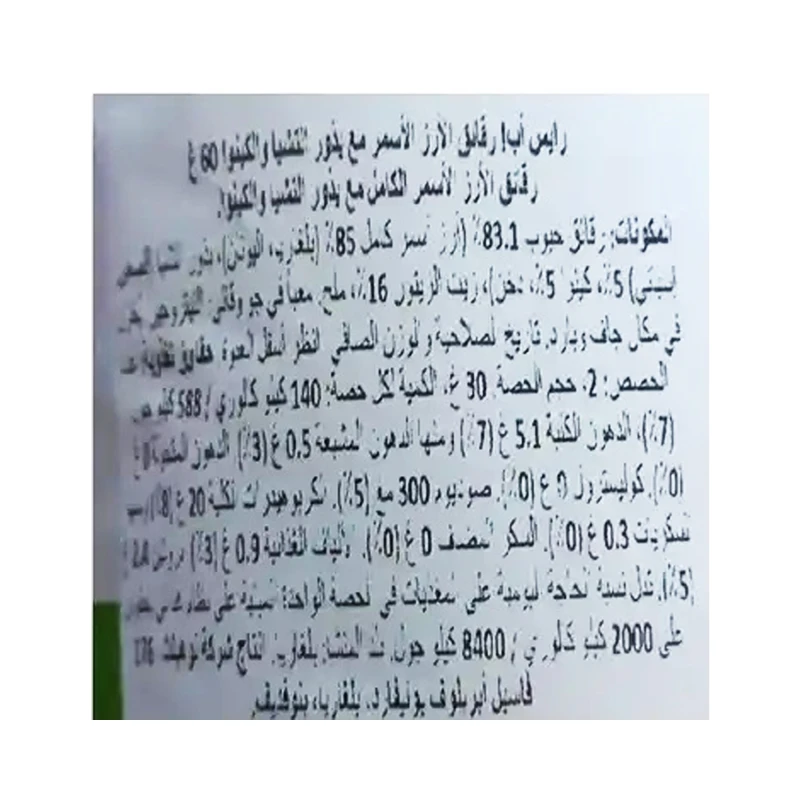 رايس أب! رقائق الأرز الأسمر مع بذور التشيا والكينوا 60 غ
رقائق الأرز الأسمر الكامل مع بذور التشيا والكينوا.
المكونات: رقائق حبوب 83.1٪ (أرز أسمر كامل 85٪ (بلغاريا، اليونان)، بذور تشيا
5٪، كينوا 5٪، دخن)، زيت الزيتون 16٪، ملح. معبأ في جو وقائي.
في مكان جاف وبارد. تاريخ الصلاحية والوزن الصافي انظر أسفل العبوة. حقائق تغذوية: عدد
الحصص: 2، حجم الحصة: 30 غ، الكمية لكل حصة: 140 كيلو كالوري / 588 كيلو جول
(7٪)، الدهون الكلية 5.1 غ (7٪) ومنها الدهون المشبعة 0.5 غ (3٪) الدهون المتحولة 0 غ
(0٪). كوليسترول 0 غ (0٪). صوديوم 300 مغ (5٪). الكربوهيدرات الكلية 20 غ (8٪)
السكريات 0.3 غ (0٪). السكر المضاف 0 غ (0٪). الألياف الغذائية 0.9 غ (3٪) بروتين 2.4 غ
(5٪). تدل نسبة الحاجة اليومية على المغذيات في الحصة الواحدة المبنية على نظام غذائي يحتوي
على 2000 كيلو كالوري / 8400 كيلو جول. بلد المنشأ: بلغاريا. إنتاج شركة 176
فاسيل أبريلوف بوليفارد، بلغاريا، بلوفديف.